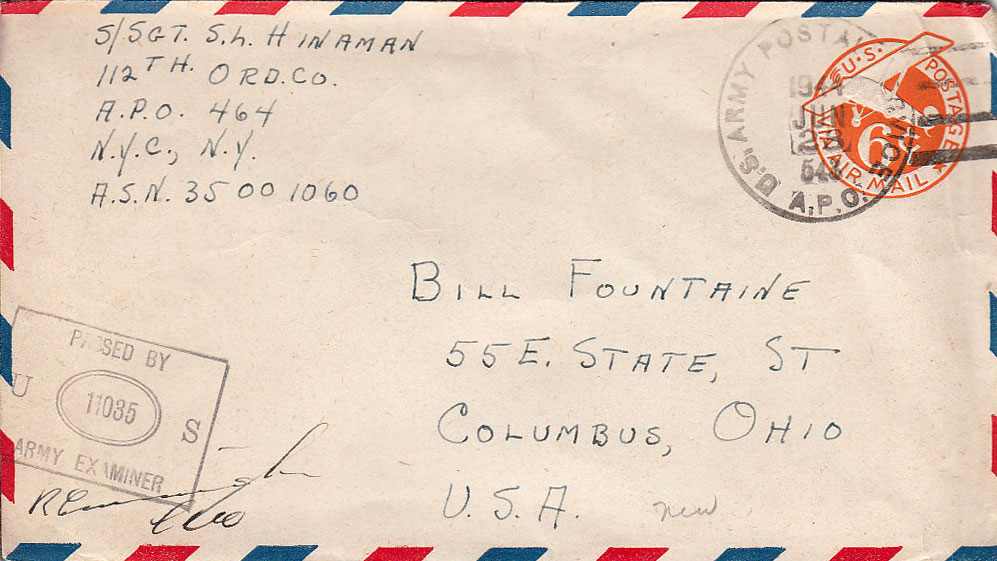 S/SGT. S.L. HINAMAN
112TH. ORD.CO.
A.P.O. 464
N.Y.C., N.Y.
A.S.N. 35001060
U.S. ARMY POSTAL SERVICE
1944
JUN
A.P.O.
U.S. POSTAGE
6¢
VIA AIR MAIL
BILL FOUNTAINE
55 E. STATE, ST
COLUMBUS, OHIO
U.S.A.
new
PASSED BY
U 11035 S
ARMY EXAMINER